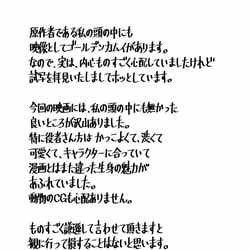 原作者である私の頭の中にも
映像としてゴールデンカムイがあります。
なので、実は、内心ものすごく心配していましたけれど
試写を拝見いたしましてホッとしています。
今回の映画には、私の頭の中にも無かった
良いところが沢山ありました。
特に役者さん方は かっこよくて、渋くて
可愛くて、キャラクターに合っていて
漫画とはまた違った生身の魅力が
あふれていました。
動物のCGも心配ありません。
ものすごく謙遜して言わせて頂きますと
観に行って損することはないと思います。